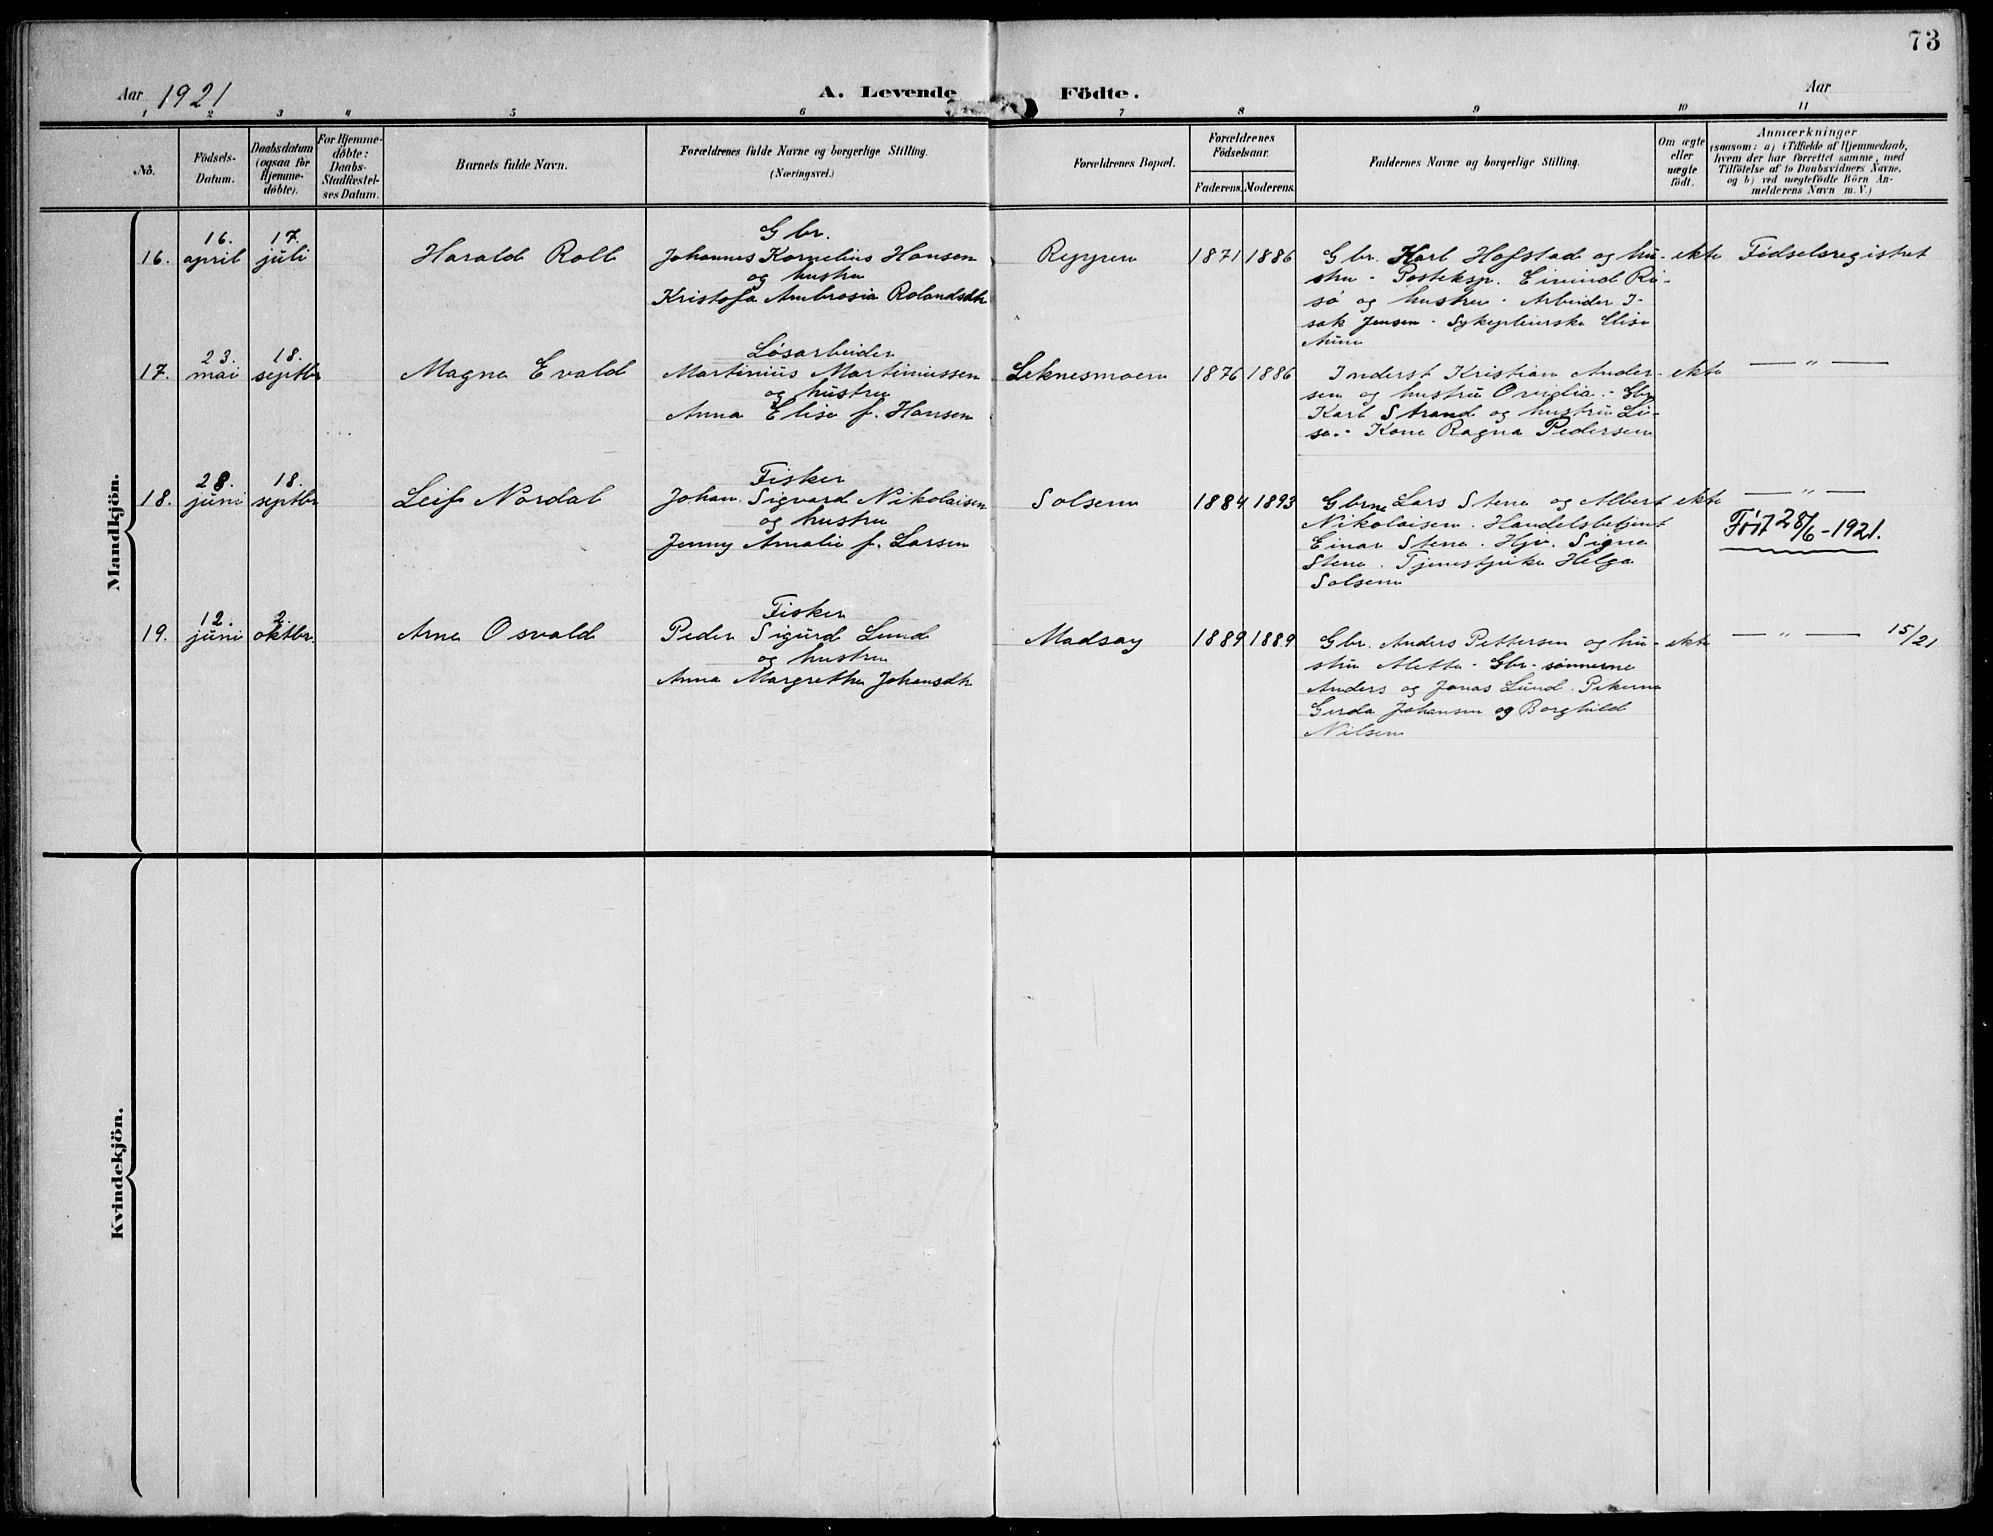 73
Aar 1921 A. Levende Födte. Aar
1 2 3 4 5 6 7 8 9 10 11
No.
Födsels-
Datum.
Daabsdatum
(ogsaa for
Hjemme-
döbte).
For Hjemme-
döbte:
Daabs-
Stadfæstel-
ses Datum.
Barnets fulde Navn.
Forældrenes fulde Navne og borgerlige Stilling.
(Næringsvei.)
Forældrenes Bopæl.
Forældrenes
Födselsaar.
Faderens. Moderens.
Faddernes Navne og borgerlige Stilling.
Om ægte
eller
uægte
födt.
Anmærkninger
(saasom: a) i Tilfælde af Hjemmedaab,
hvem der har forrettet samme, med
Tilföielse af to Daabsvidners Navne,
og b) ved uægtefödte Börn An-
melderens Navn m. V.)
Mandkjön.
16.
16.
april
17.
juli
Harald Rolb
Gbr.
Johannes Kornelius Hansen
og hustru
Kristofa Ambrosia Rolandsdtr
Reppen
1871 1886
Gbr. Karl Hofstad og hu-
stru - Posteksp. Eivind Ri-
sö og hustru - Arbeider I-
sak Jensen - Sykepleierske Elise
Aune
ekte
Födselsregistret
17.
23.
mai
18.
septbr
Magne Evald
Løsarbeider
Martinius Martinussen
og hustru
Anna Elise f. Hansen
Leknesmoen
1876 1886
Inderst Kristian Ander-
sen og hustru Ovidia - Gbr
Karl Strand og hustru Lu-
se - Kone Ragna Pedersen
ekte
— " —
18.
28.
juni
18.
septbr
Leif Nordal
Fisker
Johan Sigvard Nikolaisen
og hustru
Jenny Amalie f. Larsen
Solsem
1884 1893
Gbrne Lars Stene og Albert
Nikolaisen. Handelsbetjent
Einar Stene. Hjv. Signe
Stene. Tjenestpike Helga
Solsem
ekte
— " —
Født 28/6-1921.
19.
12.
juni
2.
oktbr.
Arne Osvald
Fisker
Peder Sigurd Lund
og hustru
Anna Margrethe Johansdtr
Madsøy
1889 1889
Gbr. Anders Pettersen og hu-
stru Mette - Gbr-sønnerne
Anders og Jonas Lund. Pikerne
Gerda Johansen og Borghild
Nilsen
ekte
— " — 15/21
Kvindekjön.